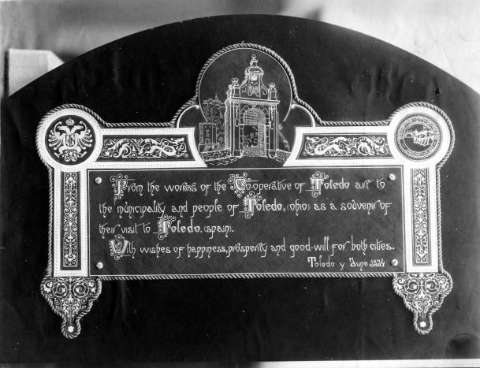 From the workes of the Cooperative of Toledo art to
the municipality and people of Toledo, ohio; as a souvenir of
their visit to Toledo, (spain).
With wishes of happiness, prosperity and good-will for both cities.
Toledo y June 1934